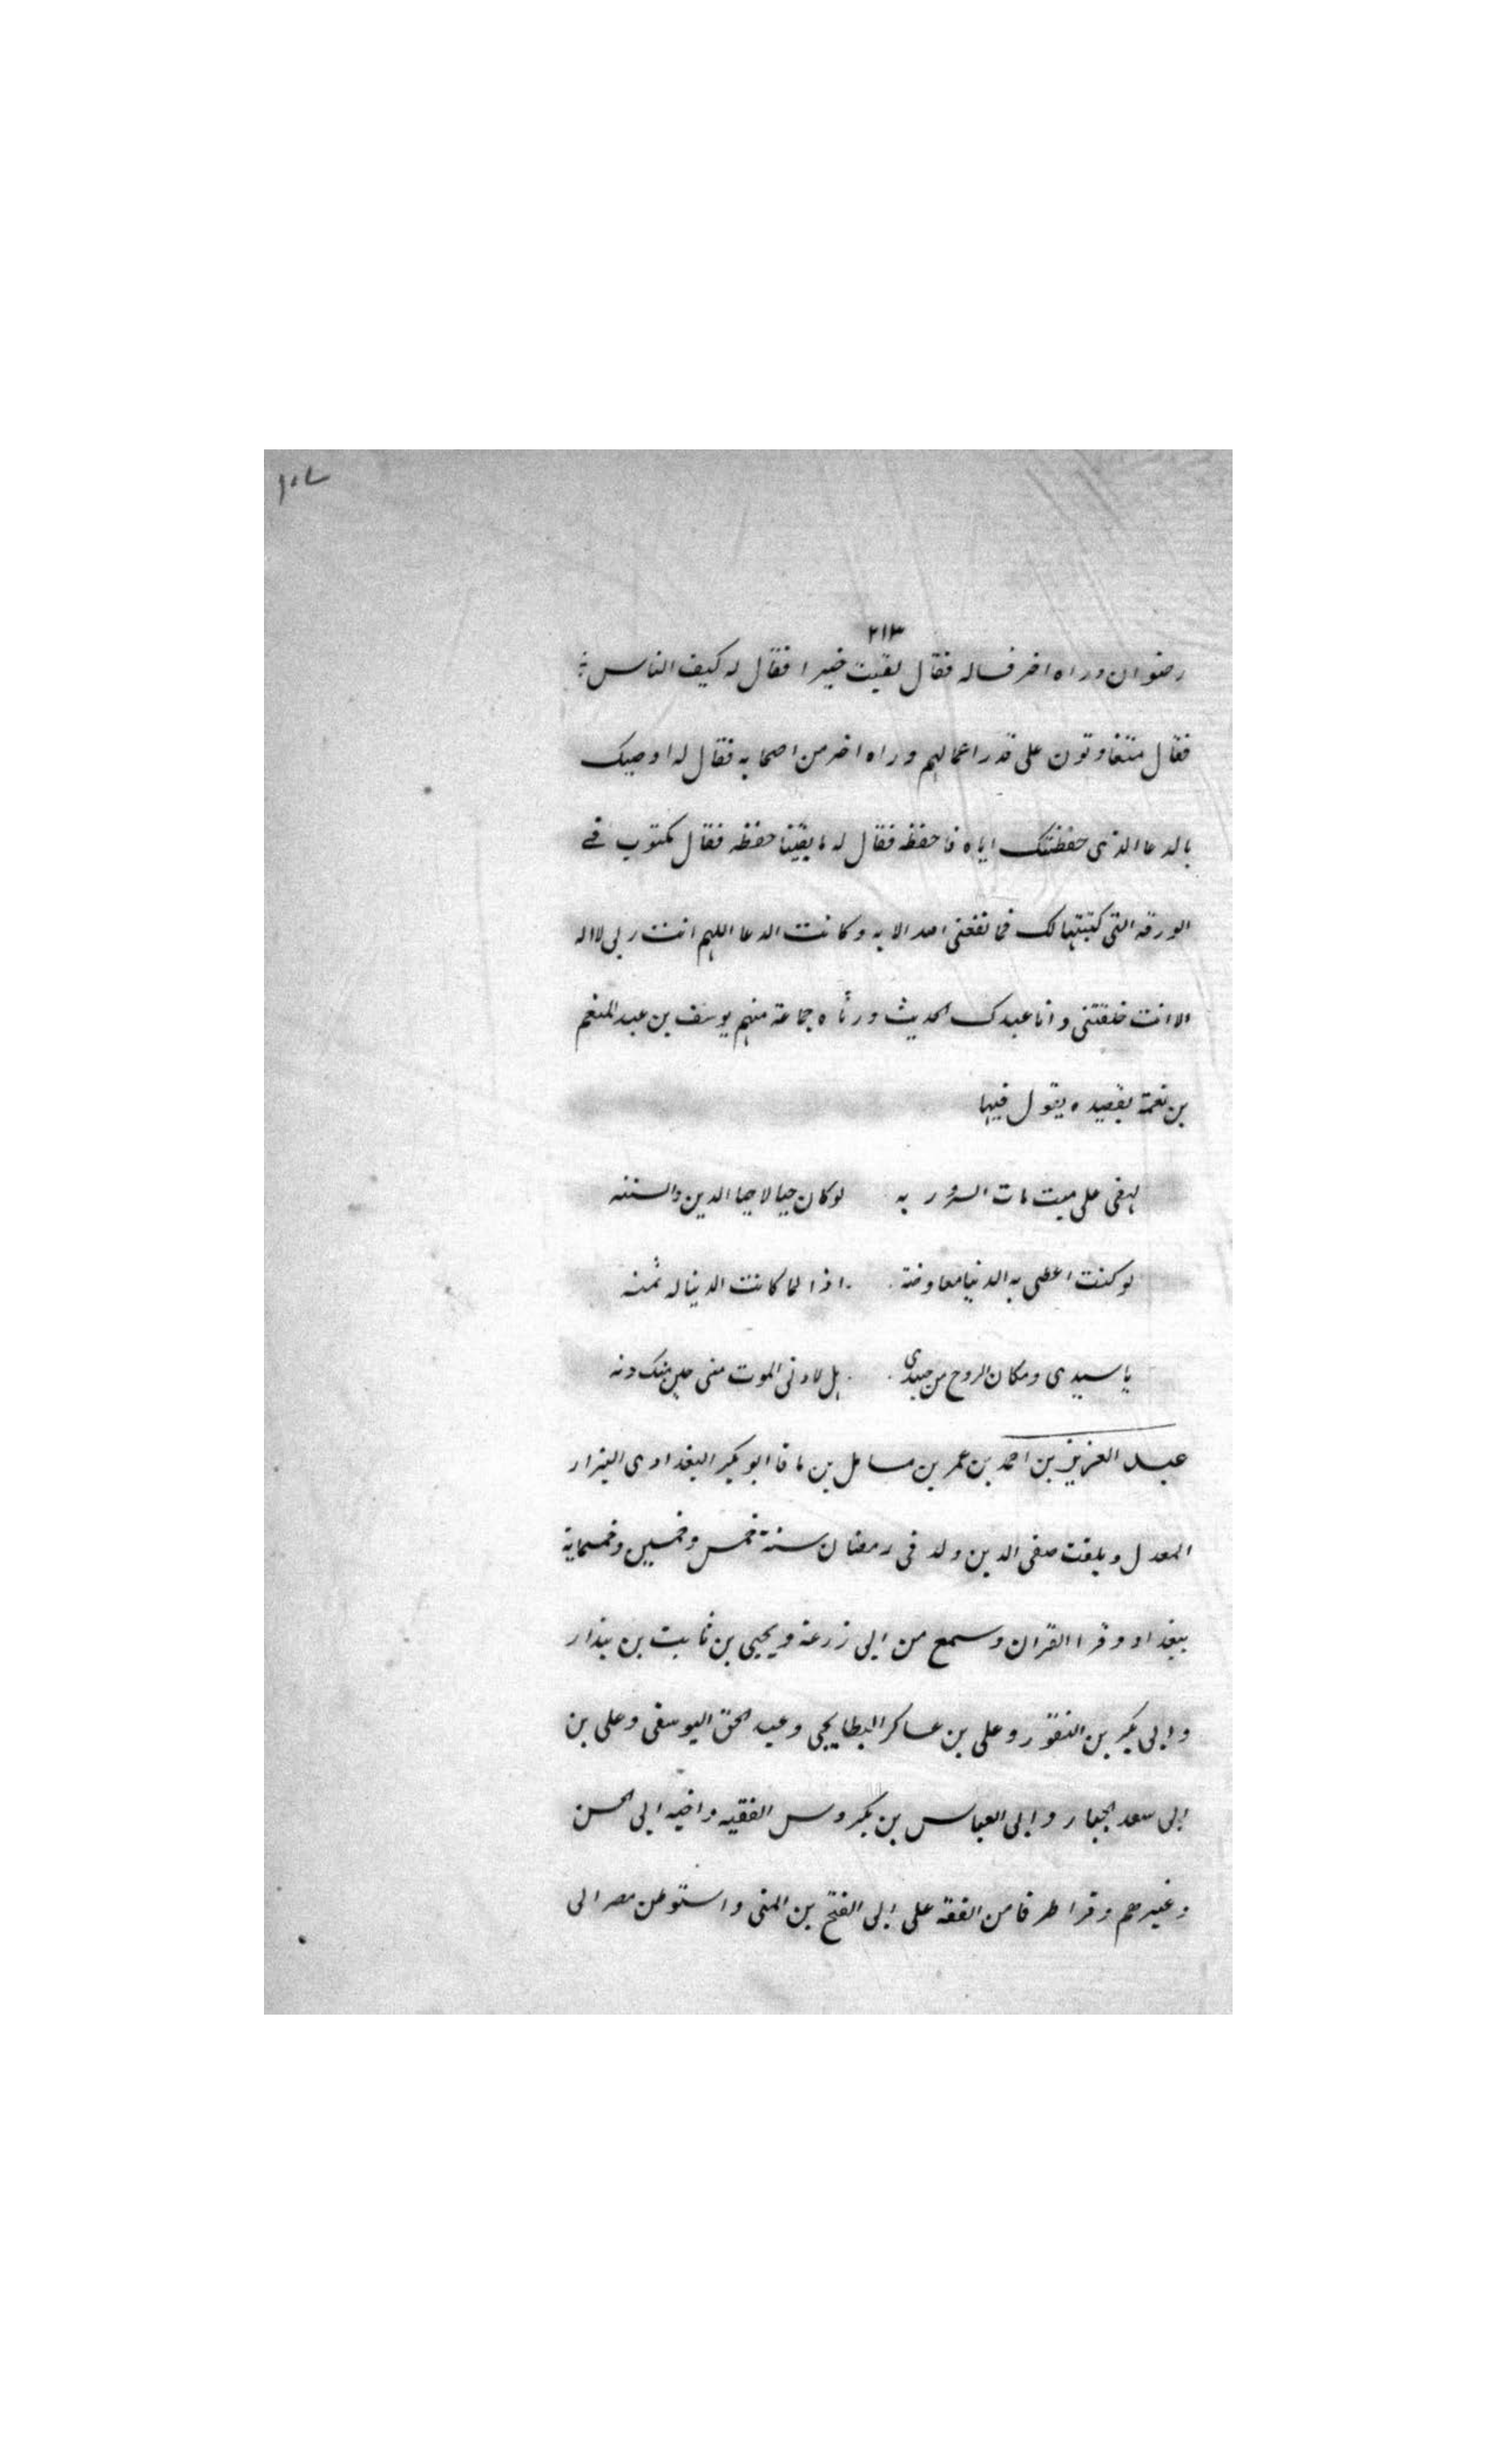 ٢١٣
رضوان وراه اخر فساله فقال لقيت خيرا فقال له كيف الناس
فقال متفاوتون على قدر اعمالهم وراه اخر من اصحابه فقال له اوصيك
بالدعا الذى حفظتك اياه فاحفظه فقال له ما بقينا حفظه فقال مكتوب فى
الورقه التى كتبتها لك فما نفعنى احد الا به وكانت الدعا اللهم انت ربى لااله
الا انت خلقتنى وانا عبدك الحديث ورثاه جماعة منهم يوسف بن عبد المنعم
بن نعمة بقصيده يقول فيها
لهفى على ميت مات السرور به لوكان حيا لاحيا الدين والسننه
لو كنت اعطى به الدنيا معاوضة اذا لما كانت الدنيا له ثمنه
يا سيدى ومكان الروح من جسدى هل لادنى الموت منى حين منك دنه
عبد العزيز بن احمد بن عمر بن سامل بن باقا ابو بكر البغدادى البزار
المعدل ويلقب صفى الدين ولد فى رمضان سنة خمس وخمسين وخمسماية
ببغداد وقرا القران وسمع من ابى زرعة ويحيى بن ثابت بن بندار
وابى بكر بن النقور وعلى بن عساكر البطايحى وعبد الحق اليوسفى وعلى بن
ابى سعد الجبار وابى العباس بن بكروس الفقيه واخيه ابى الحسن
وغيرهم وقرا طرفا من الفقه على ابى الفتح بن المنى واستوطن مصر الى